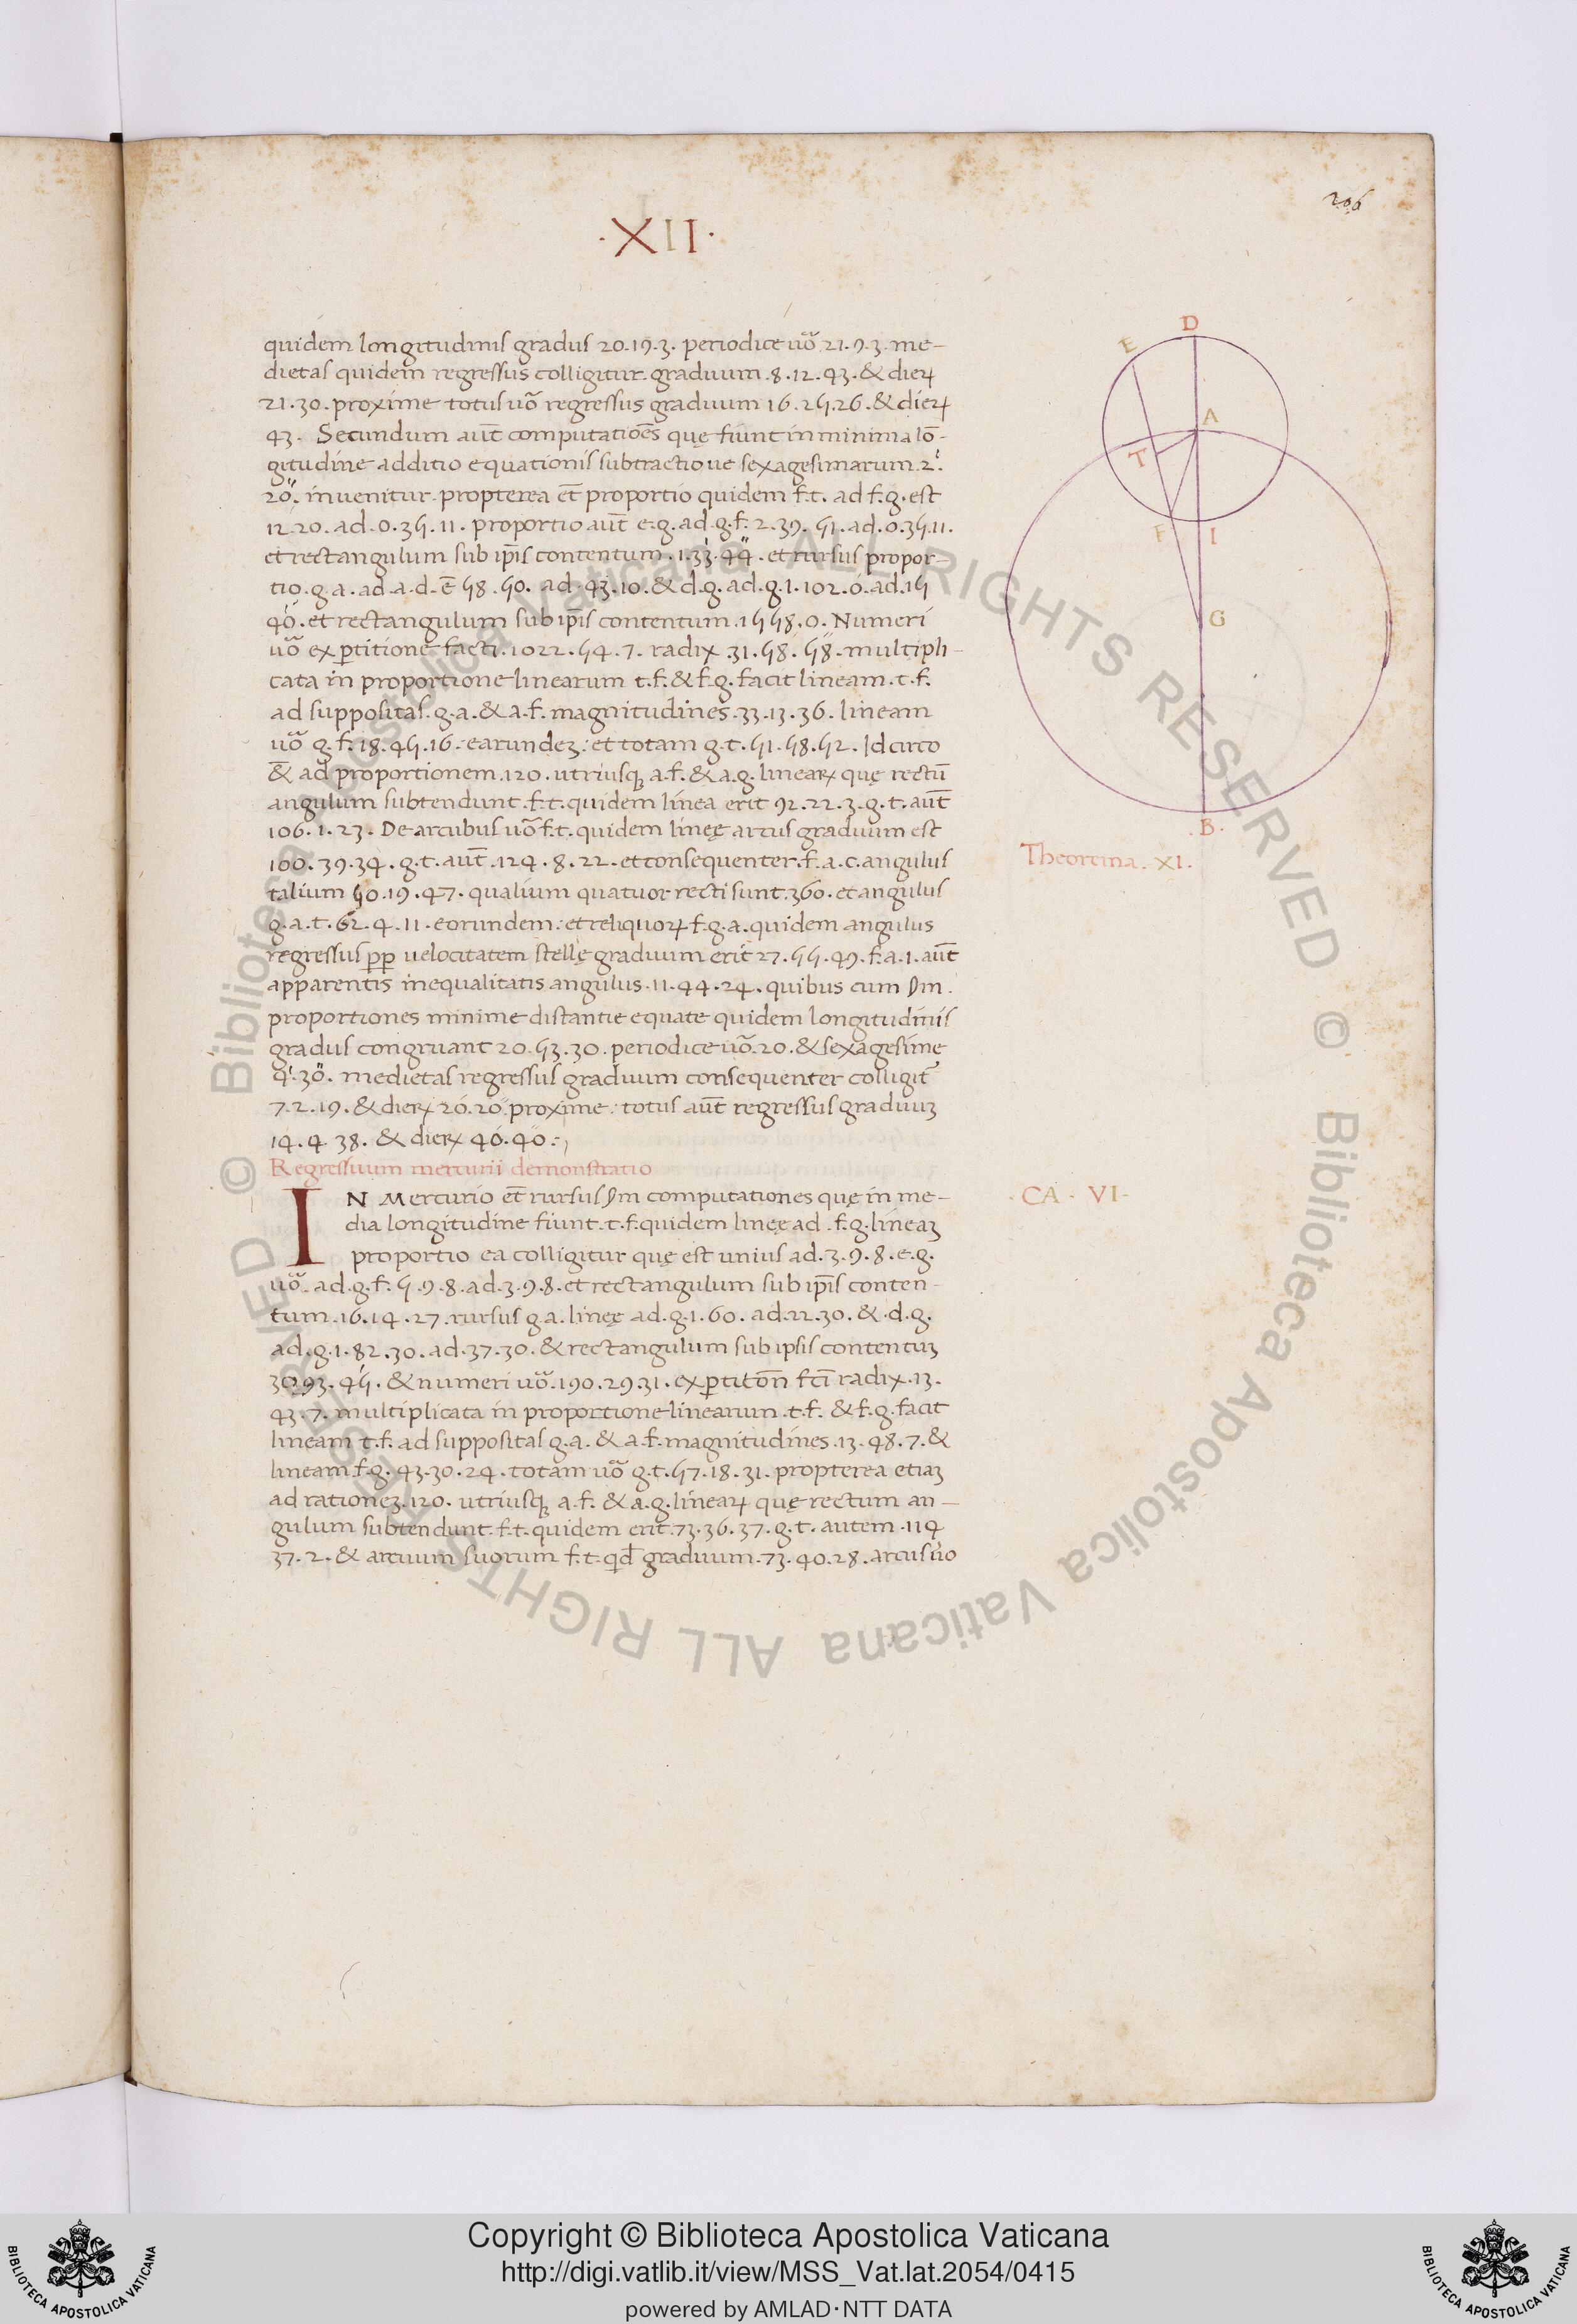 206
·XII·
quidem longitudinis gradus 20.19.3. periodice uo᷃ 21.9.3. me-
dietas quidem regressus colligitur graduum .8.12.43. & dieꝝ
21.30. proxime totus uo᷃ regressus graduum 16.25.26. & dieꝝ
43. Secundum aut̄ computatioēs quę fiunt in minima lō-
gitudine additio equationis subtractioue sexagesimarum .2'.
20''. inuenitur propterea et̄ proportio quidem f.t. ad f.g. est
12.20. ad .0.35.11. proportio aut̄ e.g. ad .g.f. 2.39.51. ad .0.35.11.
et rectangulum sub ip̄is contentum .1.33'.44''. et rursus propor-
tio .g.a. ad .a.d. ē 58.50. ad .43.10. & d.g. ad .g.1.102.0. ad .15
40'. et rectangulum sub ip̄is contentum .1558.0. Numeri
uo᷃ ex ꝑtitione facti .1022.54.7. radix .31.58.58. multipli-
cata in proportione linearum t.f. & f.g. facit lineam .t.f.
ad suppositas .g.a. & a.f. magnitudines .33.13.36. lineam
uo᷃ g.f. 18.45.16. earundeꝫ: et totam g.t. 51.58.52. Idcirco
&̄ ad proportionem .120. utriusqꝫ a.f. & a.g. lineaꝝ quę rectū
angulum subtendunt .f.t. quidem linea erit 92.22.3. g.t. aut̄
106.1.23. De arcubus uo᷃ f.t. quidem lineę arcus graduum est
100.39.34. g.t. aut̄ .124.8.22. et consequenter .f.a.c. angulus
talium 50.19.47. qualium quatuor recti sunt .360. et angulus
g.a.t. 62.4.11. eorundem: et reliquoꝝ f.g.a. quidem angulus
regressus ꝓꝑ uelocitatem stellę graduum erit 27.55.49. f.a.1. aut̄
apparentis inequalitatis angulus .11.44.24. quibus cum s̄m
proportiones minime distantie equate quidem longitudinis
gradus congruant 20.53.30. periodice uo᷃ .20. & sexagesime
4'.30''. medietas regressus graduum consequenter colligit᷑
7.2.19. & dieꝝ 20.20'' proxime: totus aut̄ regressus graduuꝫ
14.4 38. & dieꝝ 40.40:,
Regressuum mercurii demonstratio
IN Mercurio et̄ rursus s̄m computationes quę in me-
dia longitudine fiunt .t.f. quidem lineę ad .f.g. lineaꝫ
proportio ea colligitur quę est unius ad .3.9.8. e.g.
uo᷃ .ad .g.f. 5.9.8. ad .3.9.8. et rectangulum sub ip̄is conten-
tum .16.14.27. rursus g a. lineę ad .g.1.60. ad .22.30. & .d.g.
ad .g.1.82.30. ad .37.30. & rectangulum sub ipsis contentuꝫ
3093.45. & numeri uo᷃ .190.29.31. ex ꝑtitōn fc̄i radix .13.
43.7. multiplicata in proportione linearum .t.f. & f.g. facit
lineam t.f. ad suppositas g.a. & a.f. magnitudines .13.48.7. &
lineam f.g. 43.30.24. totam uo᷃ g.t. 57.18.31. propterea etiaꝫ
ad rationeꝫ .120. utriusqꝫ a.f. & a.g. lineaꝝ quę rectum an-
gulum subtendunt .f.t. quidem erit .73.36.37. g.t. autem .114
37.2. & arcuum suorum f.t. qid̄ graduum .73.40.28. arcus uo
D
E
A
T
F
I
G
.B.
Theorema. XI.
CA. VI.
© Biblioteca Apostolica Vaticana ALL RIGHTS RESERVED © Biblioteca Apostolica Vaticana ALL RIGHTS RESERVED
BIBLIOTECA APOSTOLICA VATICANA
Copyright © Biblioteca Apostolica Vaticana
http://digi.vatlib.it/view/MSS_Vat.lat.2054/0415
powered by AMLAD·NTT DATA
BIBLIOTECA APOSTOLICA VATICANA